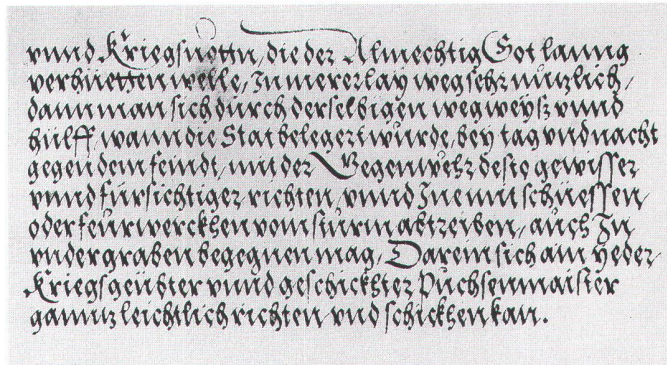 vnnd Kriegsnöttn, die der Almechtig Got lanng
verhüetten welle, In mererlay weg sehr nützlich,
dann man sich durch derselbigen wegweysz vnnd
hülff, wann die Stat belegert würde, bey tag vnd nacht
gegen dem feindt, mit der Gegenwehr desto gewisser
vnnd fürsichtiger richten, vnnd Ine mit schiessen,
oder feürwerckhen vom sturm abtreiben, auch In
vndergraben begegnen mag, Darein sich ain yeder,
Kriegsgeübter vnnd geschickhter Püchsenmaister
ganntz leichtlich richten vnd schickhen kan.